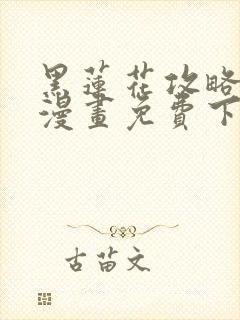 黑蓮花攻略
漫畫免費下
古苗文